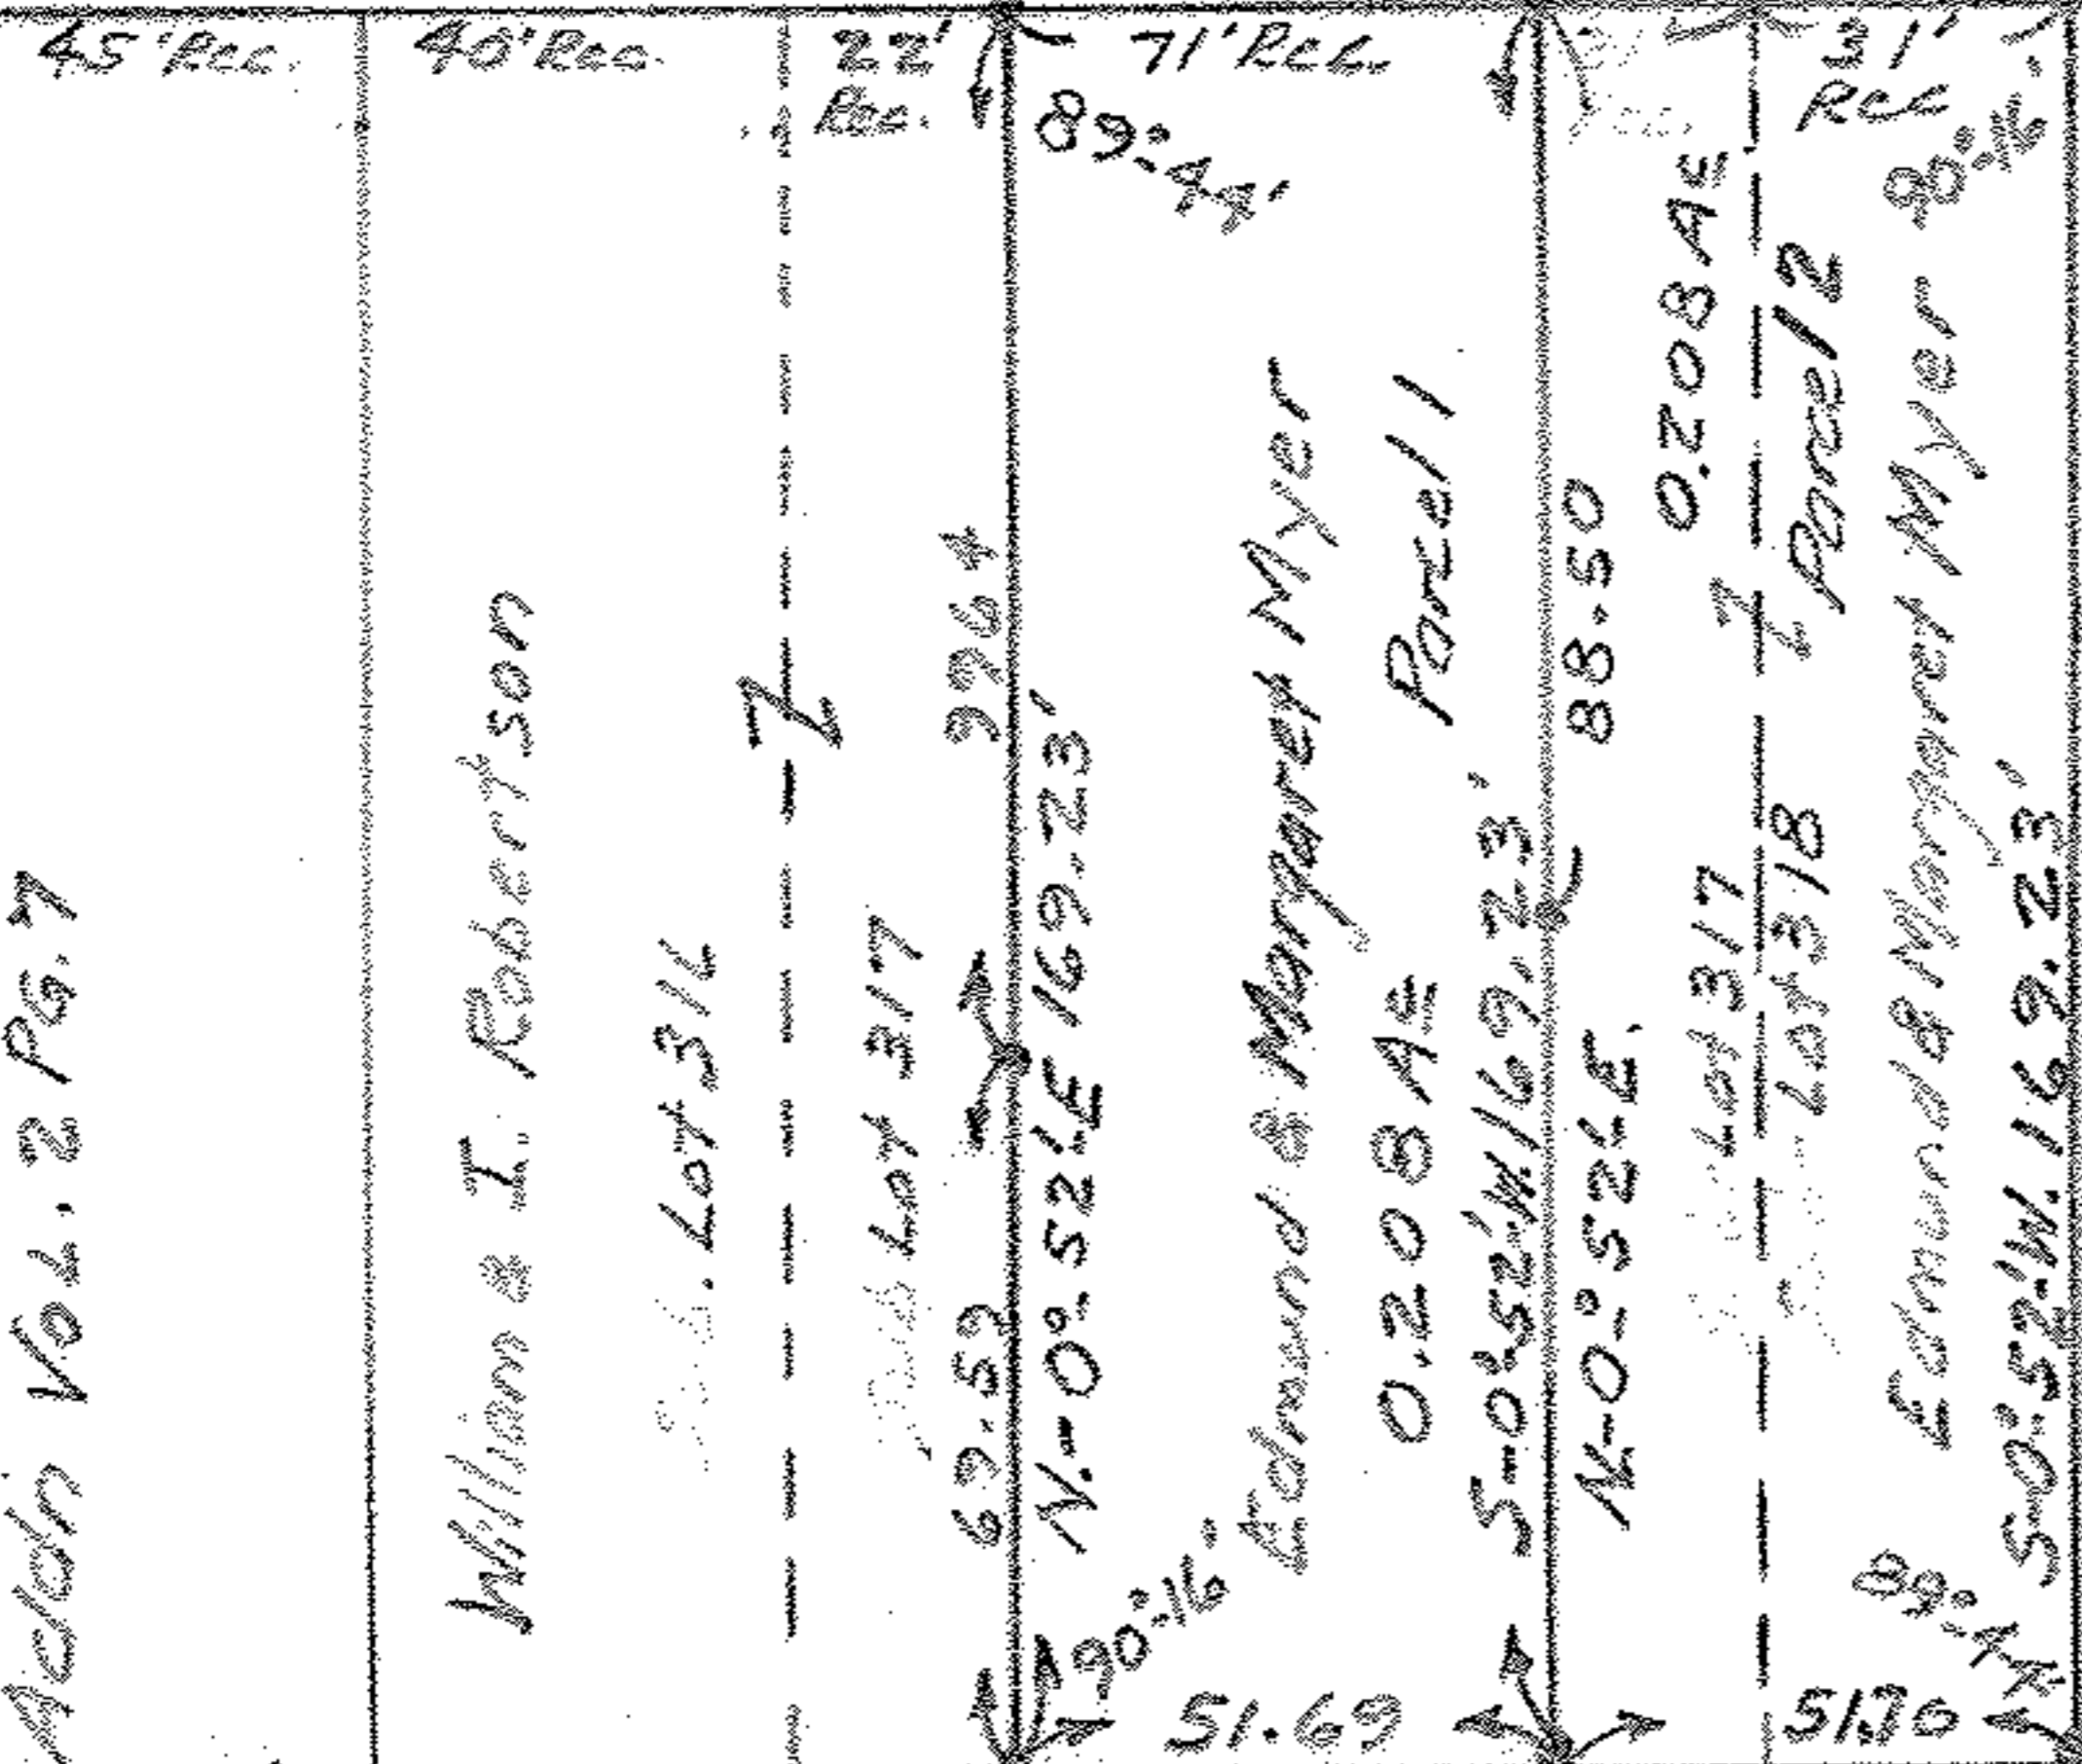 45' Rec.
40' Rec.
22' Rec.
71' Rec.
31' Rec
89°-44'
90°-16'
Addn Vol. 2 PG. 7
William & I. Robertson
Lot 316
Lot 317
99.64
69.59
N.-0°-52'-E 169.23'
Edmund & Margaret Myer
Parcel 1
0.208 AC
S-0°-52'-W. 169.23'
N-0°-52'E.
88.50
0.208 AC
Lot 317
Lot 318
Parcel 2
Edmund & Margaret Myer
S-0°-52'-W. 169.23'
90°-16'
89°-44'
51.69
51.70